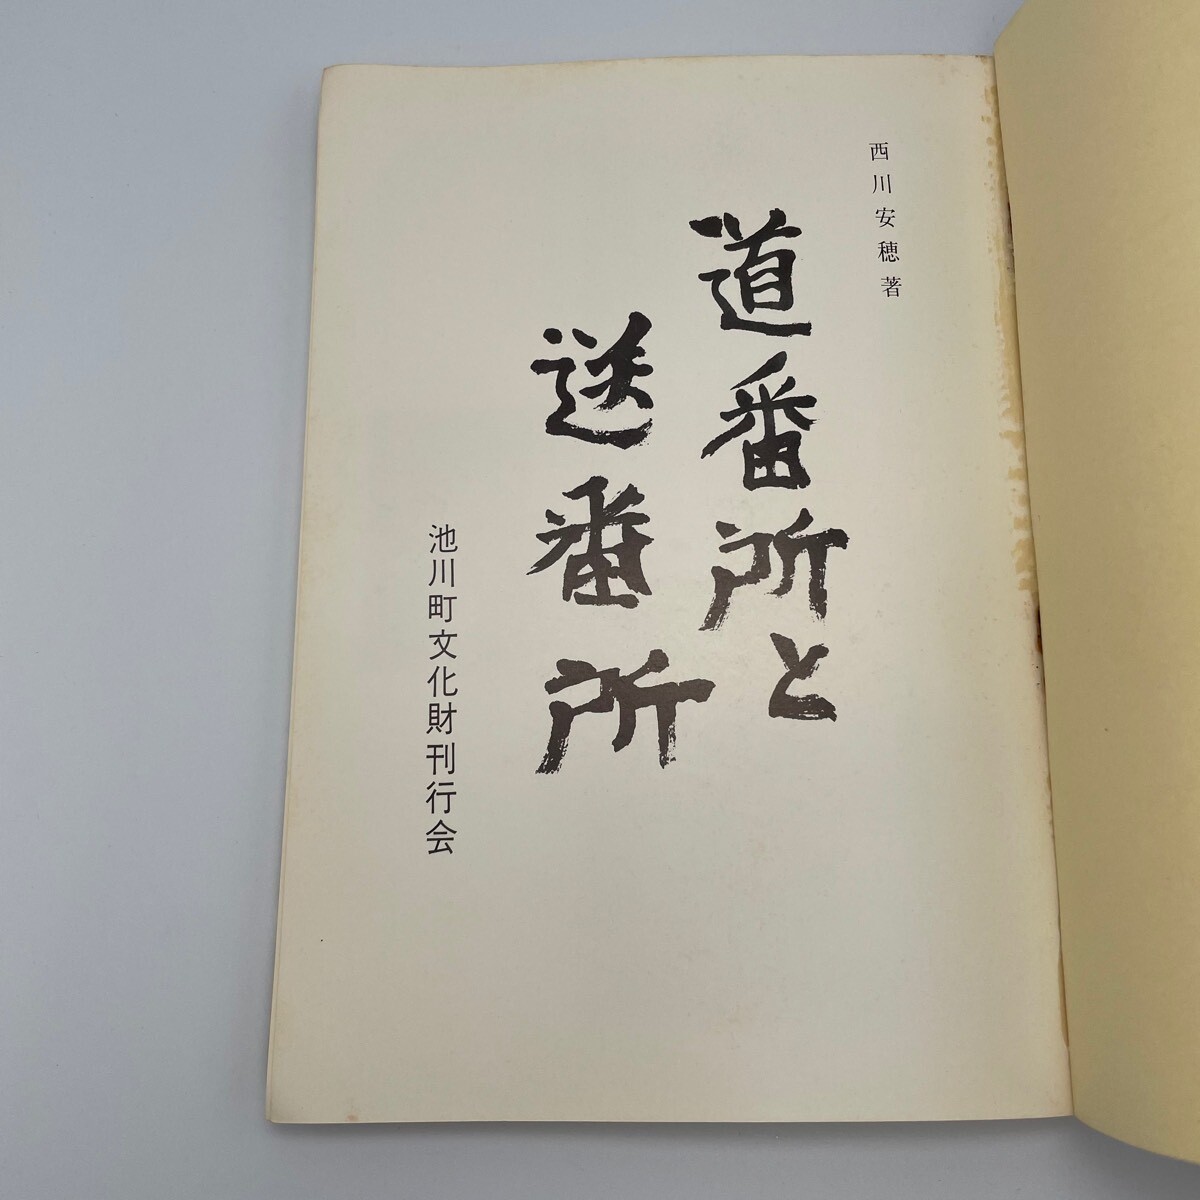 西川安穂著
道番所と
送番所
池川町文化財刊行会